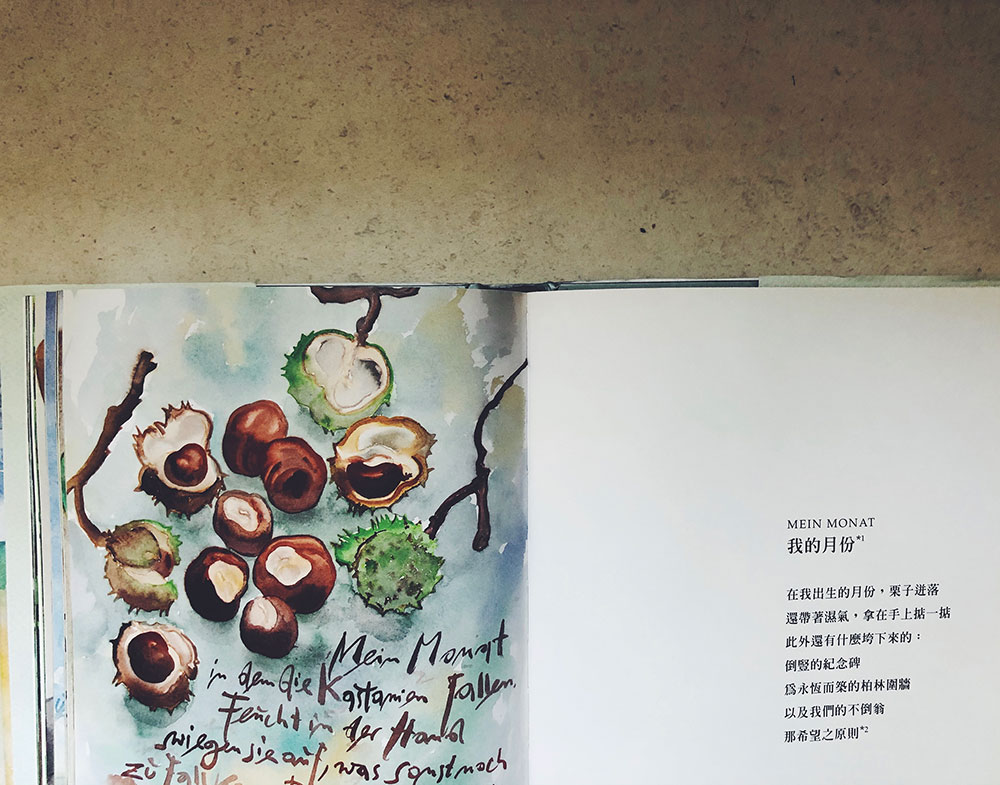 Mein Monat
in dem die Kastanien fallen.
Feucht in der Hand
wiegen sie auf, was sonst noch
zu Fall
MEIN MONAT
我的月份*1
在我出生的月份，栗子迸落
還帶著濕氣，拿在手上掂一掂
此外還有什麼垮下來的：
倒豎的紀念碑
為永恆而築的柏林圍牆
以及我們的不倒翁
那希望之原則*2